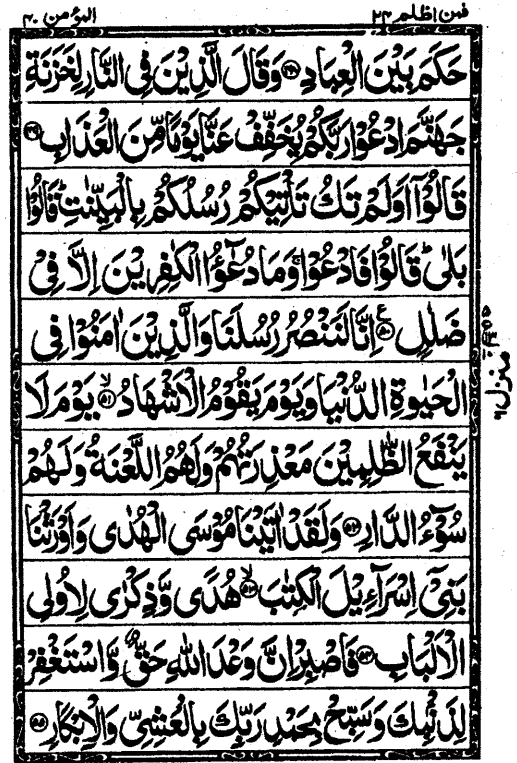 فمن اظلم ٢٤
المؤمن ٤٠
حَكَمَ بَيْنَ الْعِبَادِ ﴿۴۸﴾ وَقَالَ الَّذِيْنَ فِي النَّارِ لِخَزَنَةِ
جَهَنَّمَ ادْعُوْا رَبَّكُمْ يُخَفِّفْ عَنَّا يَوْمًا مِّنَ الْعَذَابِ ﴿۴۹﴾
قَالُوْٓا اَوَلَمْ تَكُ تَاْتِيْكُمْ رُسُلُكُمْ بِالْبَيِّنٰتِ ؕ قَالُوْا
بَلٰى ؕ قَالُوْا فَادْعُوْا ۚ وَمَا دُعٰٓؤُا الْكٰفِرِيْنَ اِلَّا فِيْ
ضَلٰلٍ ﴿۵۰﴾ ع اِنَّا لَنَنْصُرُ رُسُلَنَا وَالَّذِيْنَ اٰمَنُوْا فِي
الْحَيٰوةِ الدُّنْيَا وَيَوْمَ يَقُوْمُ الْاَشْهَادُ ﴿۵۱﴾ۙ يَوْمَ لَا
يَنْفَعُ الظّٰلِمِيْنَ مَعْذِرَتُهُمْ وَلَهُمُ اللَّعْنَةُ وَلَهُمْ
سُوْٓءُ الدَّارِ ﴿۵۲﴾ وَلَقَدْ اٰتَيْنَا مُوْسَى الْهُدٰى وَاَوْرَثْنَا
بَنِيْٓ اِسْرَآءِيْلَ الْكِتٰبَ ﴿۵۳﴾ۙ هُدًى وَّذِكْرٰى لِاُولِي
الْاَلْبَابِ ﴿۵۴﴾ فَاصْبِرْ اِنَّ وَعْدَ اللّٰهِ حَقٌّ وَّاسْتَغْفِرْ
لِذَنْۢبِكَ وَسَبِّحْ بِحَمْدِ رَبِّكَ بِالْعَشِيِّ وَالْاِبْكَارِ ﴿۵۵﴾
منزل ٦